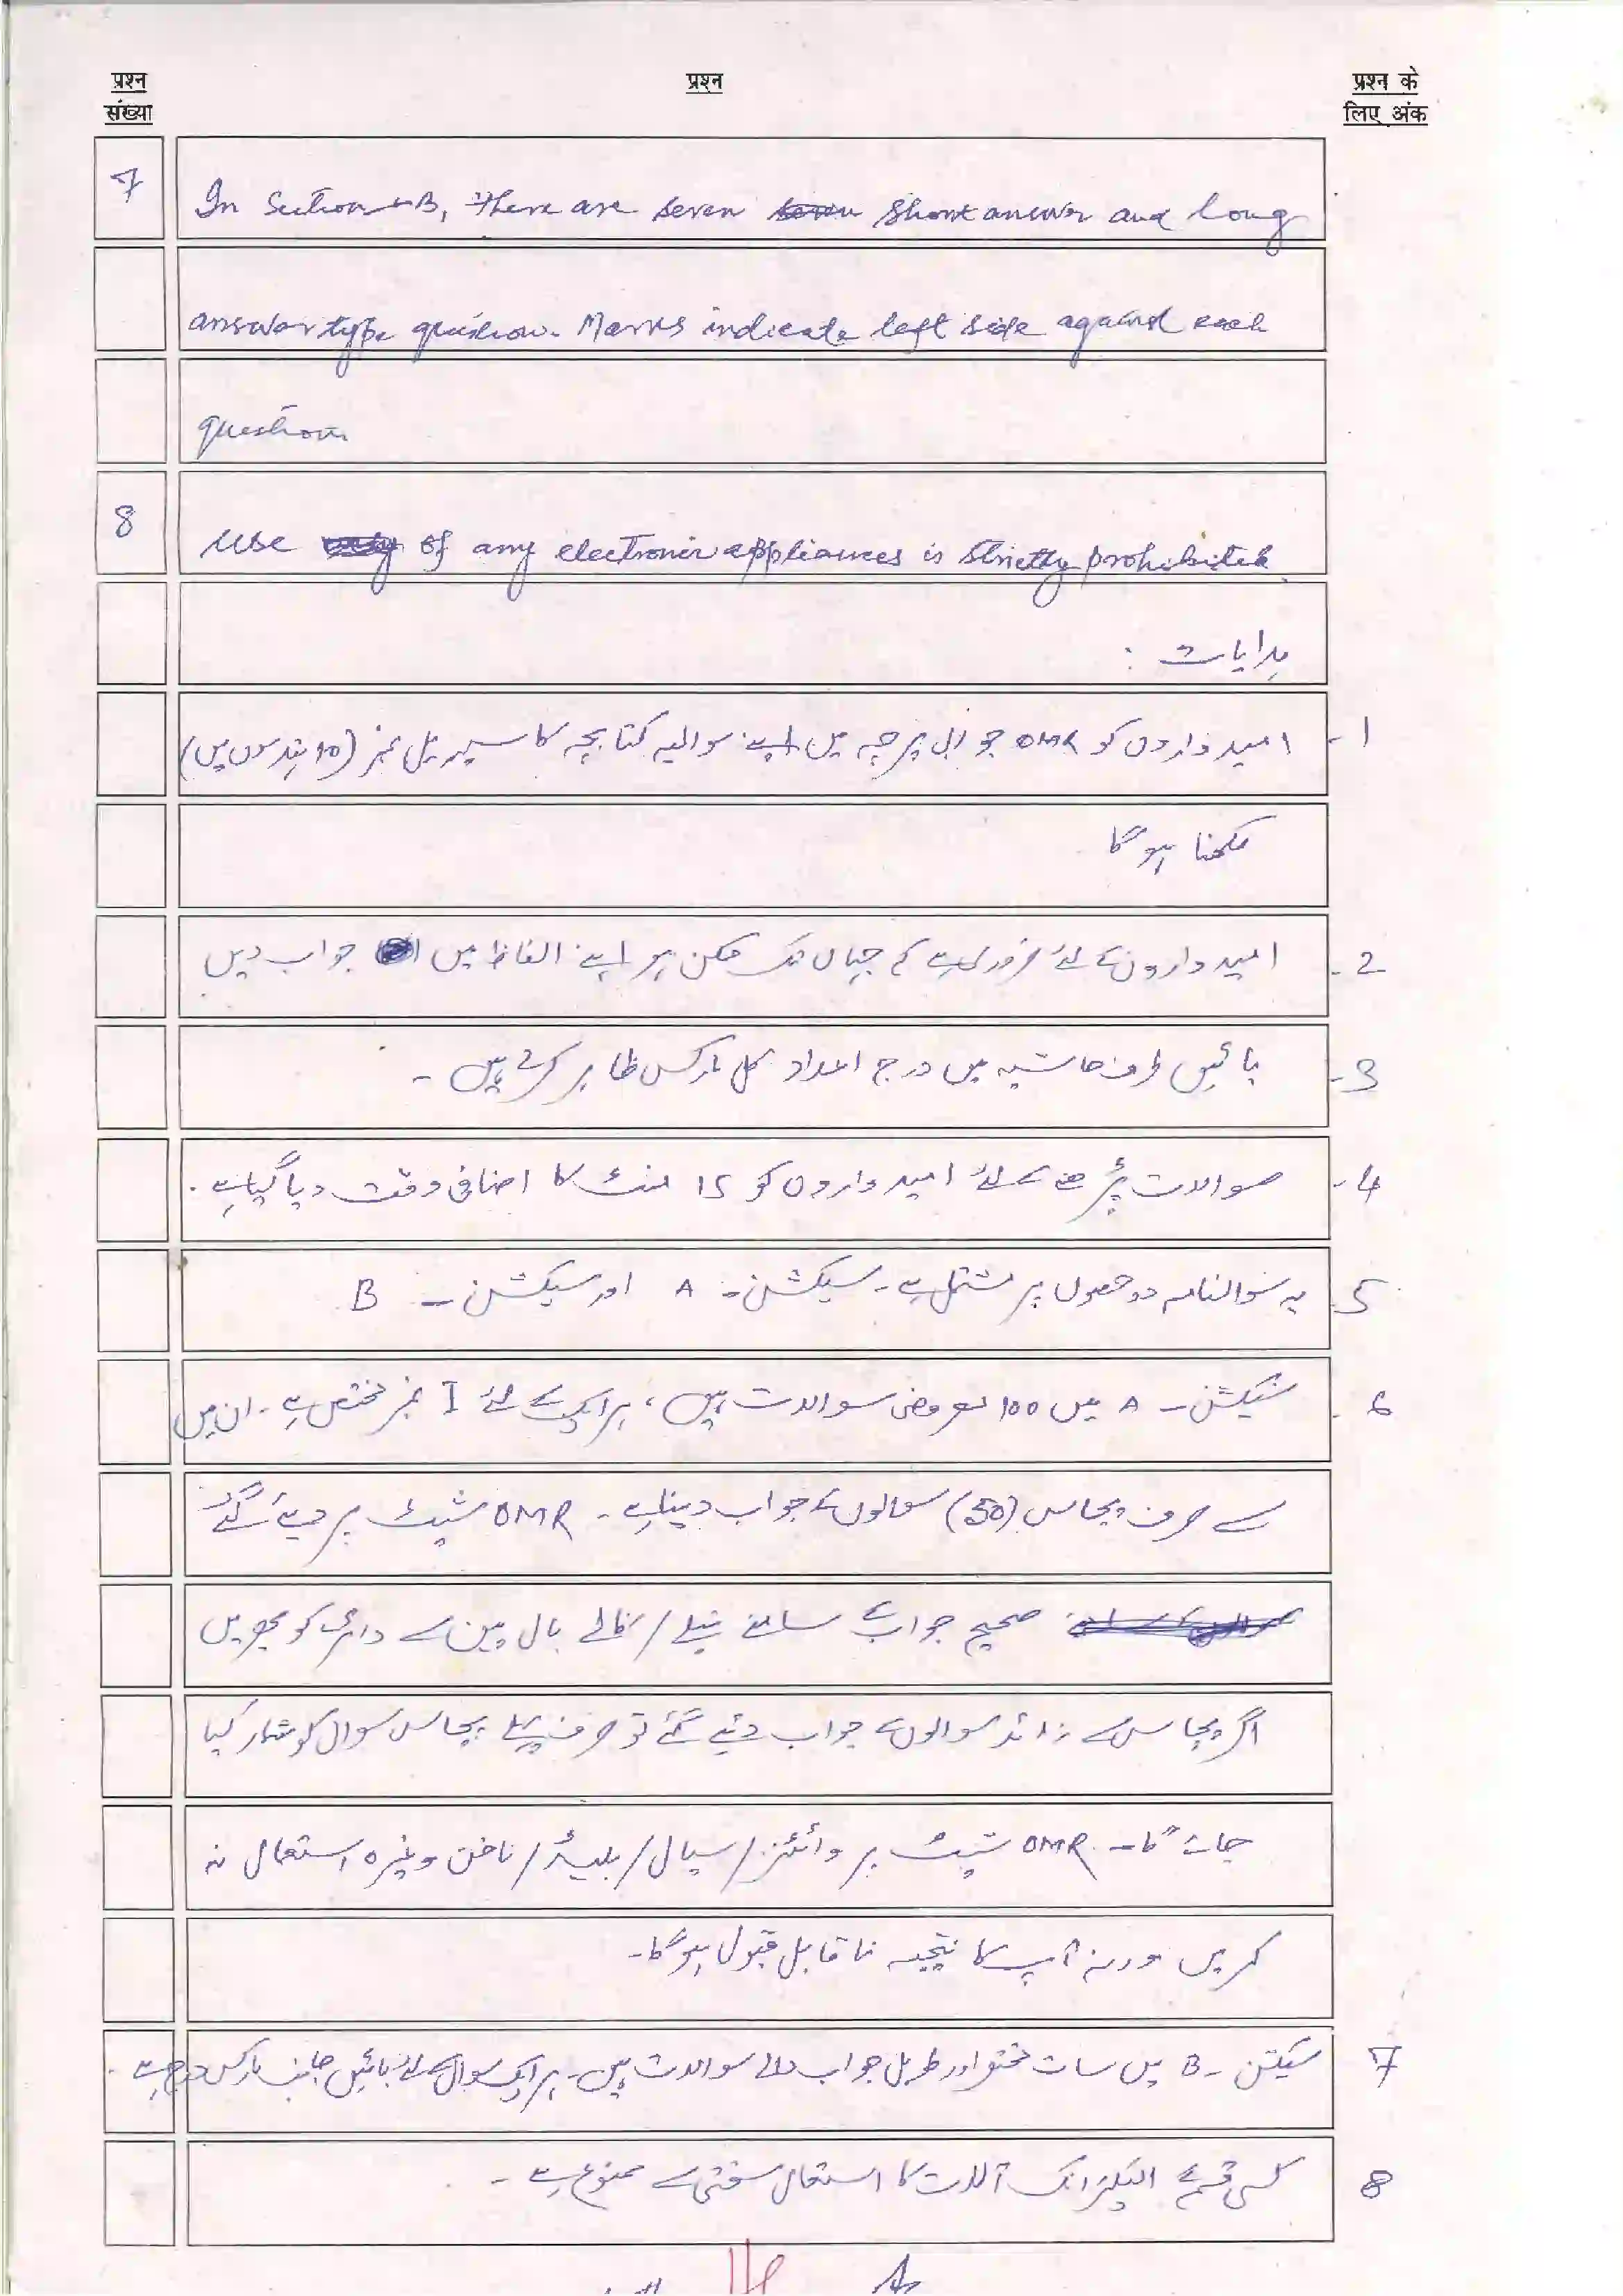 प्रश्न संख्या
प्रश्न
प्रश्न के लिए अंक
7 In Section-B, There are seven short answer and long
answer type question. Marks indicate left side against each
question
8 Use of any electronic appliances is strictly prohibited.
ہدایات :
1- امیدواروں کو OMR جوابی پرچہ میں اپنے سوالیہ کتابچہ کا سیریل نمبر (10 ہندسوں میں)
لکھنا ہوگا
2- امیدواروں کے لئے ضروری ہے کہ جہاں تک ممکن ہو اپنے الفاظ میں جواب دیں
3- بائیں طرف حاشیہ میں درج اعداد کل مارکس ظاہر کرتے ہیں -
4- سوالات پڑھنے کے لئے امیدواروں کو 15 منٹ کا اضافی وقت دیا گیا ہے .
5- یہ سوالنامہ دو حصوں پر مشتمل ہے - سیکشن - A اور سیکشن - B
6. سیکشن - A میں 100 معروضی سوالات ہیں ، ہر ایک کے لئے 1 نمبر مختص ہے - ان میں
سے صرف پچاس (50) سوالوں کے جواب دینا ہے - OMR شیٹ پر دیئے گئے
صحیح جواب کے سامنے نیلے / کالے بال پین سے دائرے کو بھریں
اگر پچاس سے زائد سوالوں کے جواب دئیے گئے تو صرف پہلے پچاس سوال کو شمار کیا
جائے گا - OMR شیٹ پر وائٹنر / سیال / بلیڈ / ناخن وغیرہ استعمال نہ
کریں ورنہ آپ کا نتیجہ ناقابل قبول ہوگا -
7 سیکشن - B میں سات مختصر اور طویل جواب والے سوالات ہیں - ہر ایک سوال کے لئے بائیں جانب مارکس درج ہے .
8 کسی قسم کے الیکٹرانک آلات کا استعمال سختی سے ممنوع ہے -